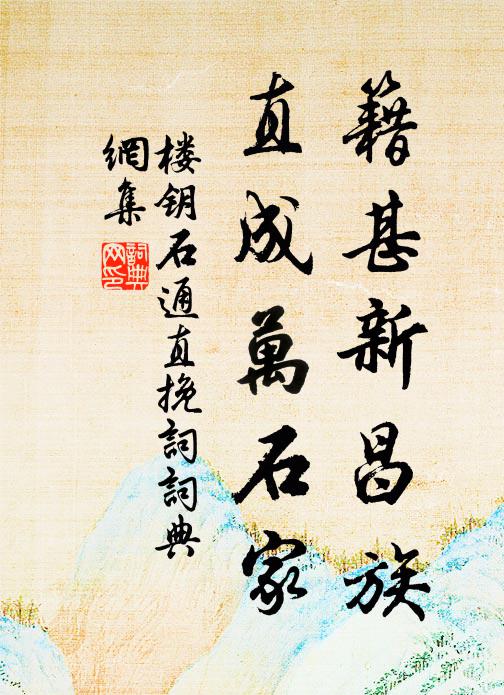 籍甚新昌族
直成萬石家
楼钥石通直挽詞詞典
網集
詞典
网印